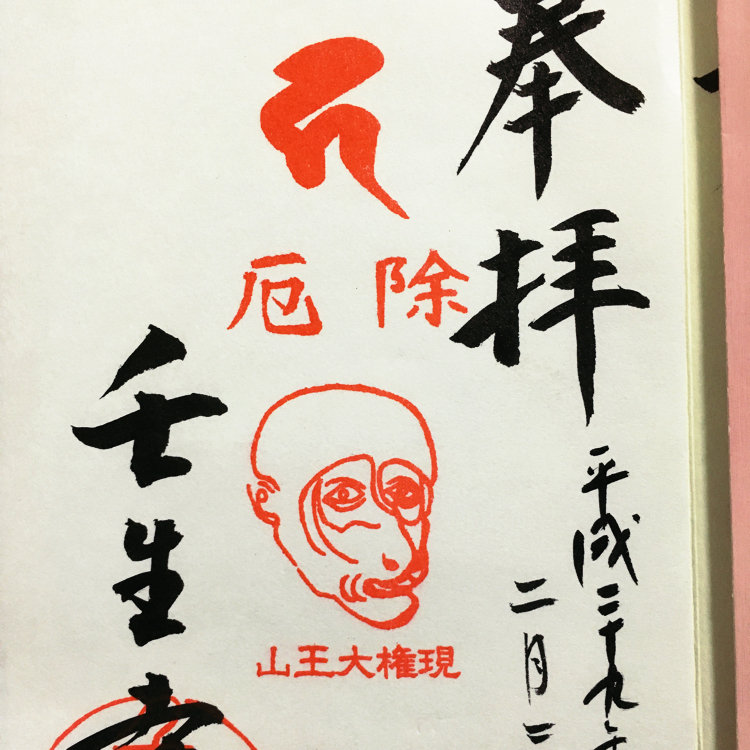 奉拝
平成二十九年
二月二
厄除
山王大権現
壬生